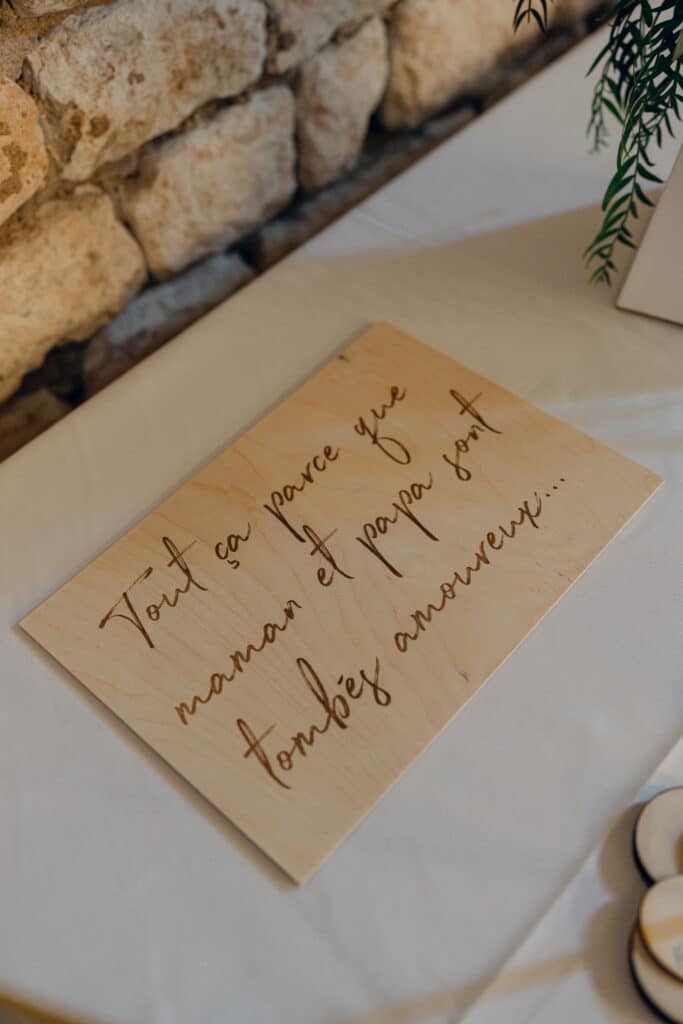 Tout ça parce que
maman et papa sont
tombés amoureux...